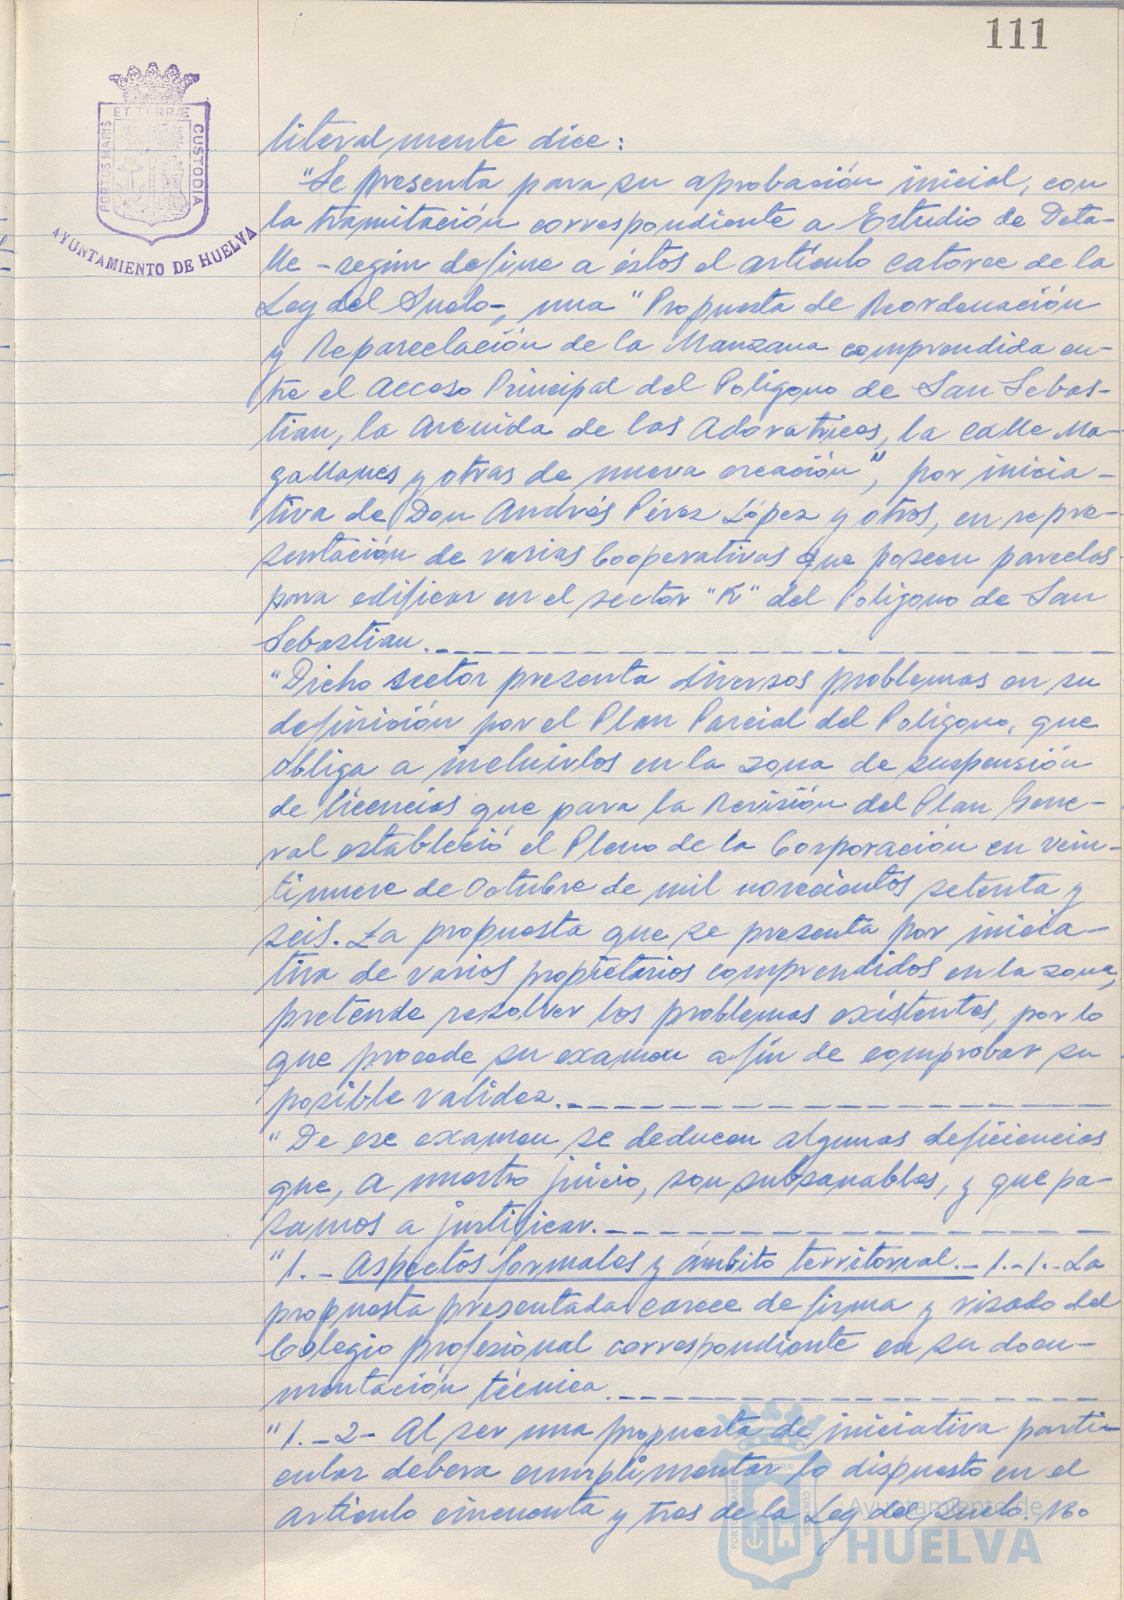 111
ET TERRÆ
PORTUS MARIS
CUSTODIA
AYUNTAMIENTO DE HUELVA
literalmente dice:
"Se presenta para su aprobación inicial, con
la tramitación correspondiente a Estudio de Deta-
lle -según define a éstos el artículo catorce de la
Ley del Suelo-, una "Propuesta de Reordenación
y Reparcelación de la Manzana comprendida en-
tre el Acceso Principal del Polígono de San Sebas-
tian, la Avenida de las Adoratrices, la calle Ma-
gallanes y otras de nueva creación", por inicia-
tiva de Don Andrés Pérez López y otros, en repre-
sentación de varias Cooperativas que poseen parcelas
para edificar en el sector "K" del Polígono de San
Sebastian.
"Dicho sector presenta diversos problemas en su
definición por el Plan Parcial del Polígono, que
obliga a incluirlos en la zona de suspensión
de licencias que para la Revisión del Plan Gene-
ral estableció el Pleno de la Corporación en vein-
tinueve de Octubre de mil novecientos setenta y
seis. La propuesta que se presenta por inicia-
tiva de varios propietarios comprendidos en la zona,
pretende resolver los problemas existentes, por lo
que procede su examen a fin de comprobar su
posible validez.
"De ese examen se deducen algunas deficiencias
que, a nuestro juicio, son subsanables, y que pa-
samos a justificar.
"1.- Aspectos formales y ámbito territorial.- 1.-1.- La
propuesta presentada carece de firma y visado del
Colegio profesional correspondiente en su docu-
mentación técnica.
"1.-2- Al ser una propuesta de iniciativa parti-
cular debera cumplimentar lo dispuesto en el
artículo cincuenta y tres de la Ley del Suelo. No
Ayuntamiento de
HUELVA